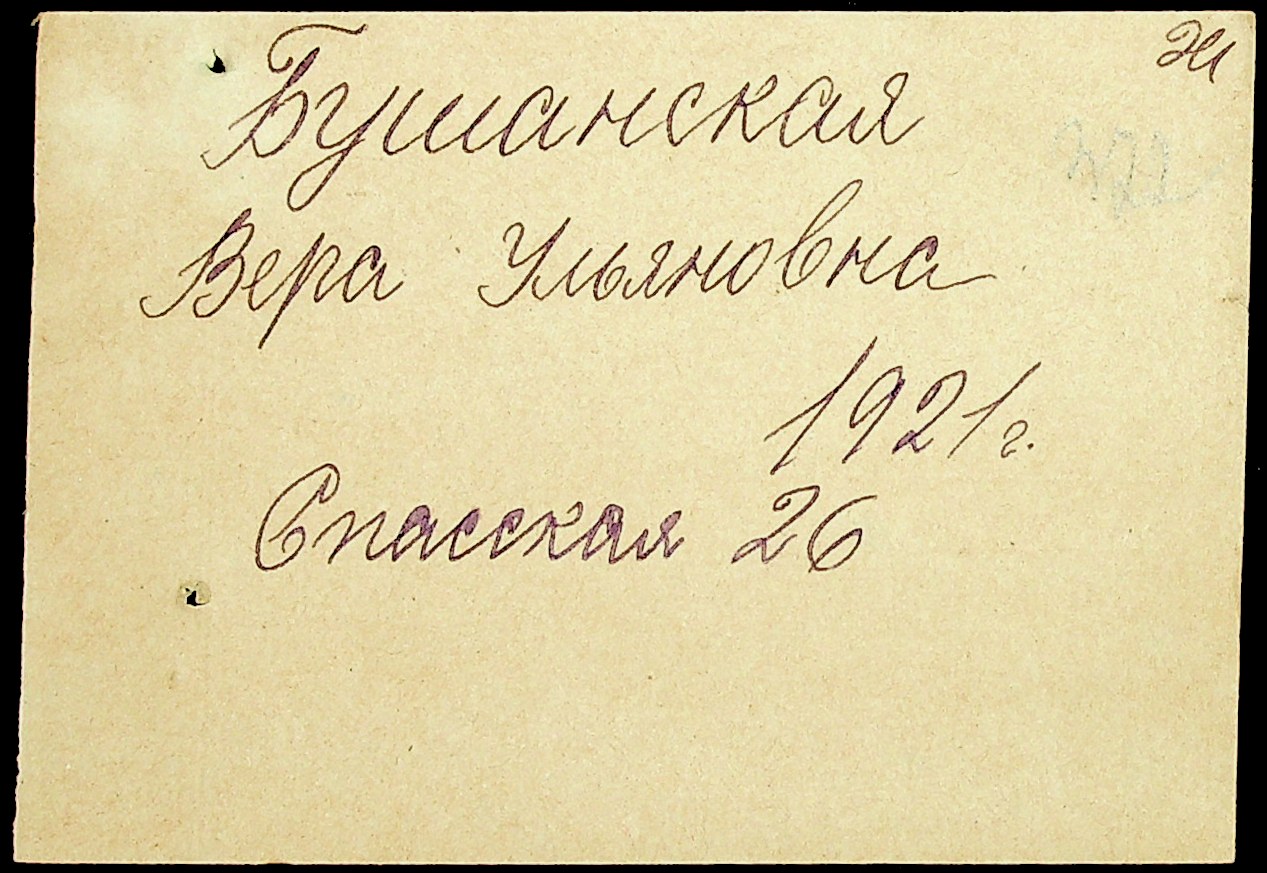 Бушанская
Вера Ульяновна
1921 г.
Спасская 26